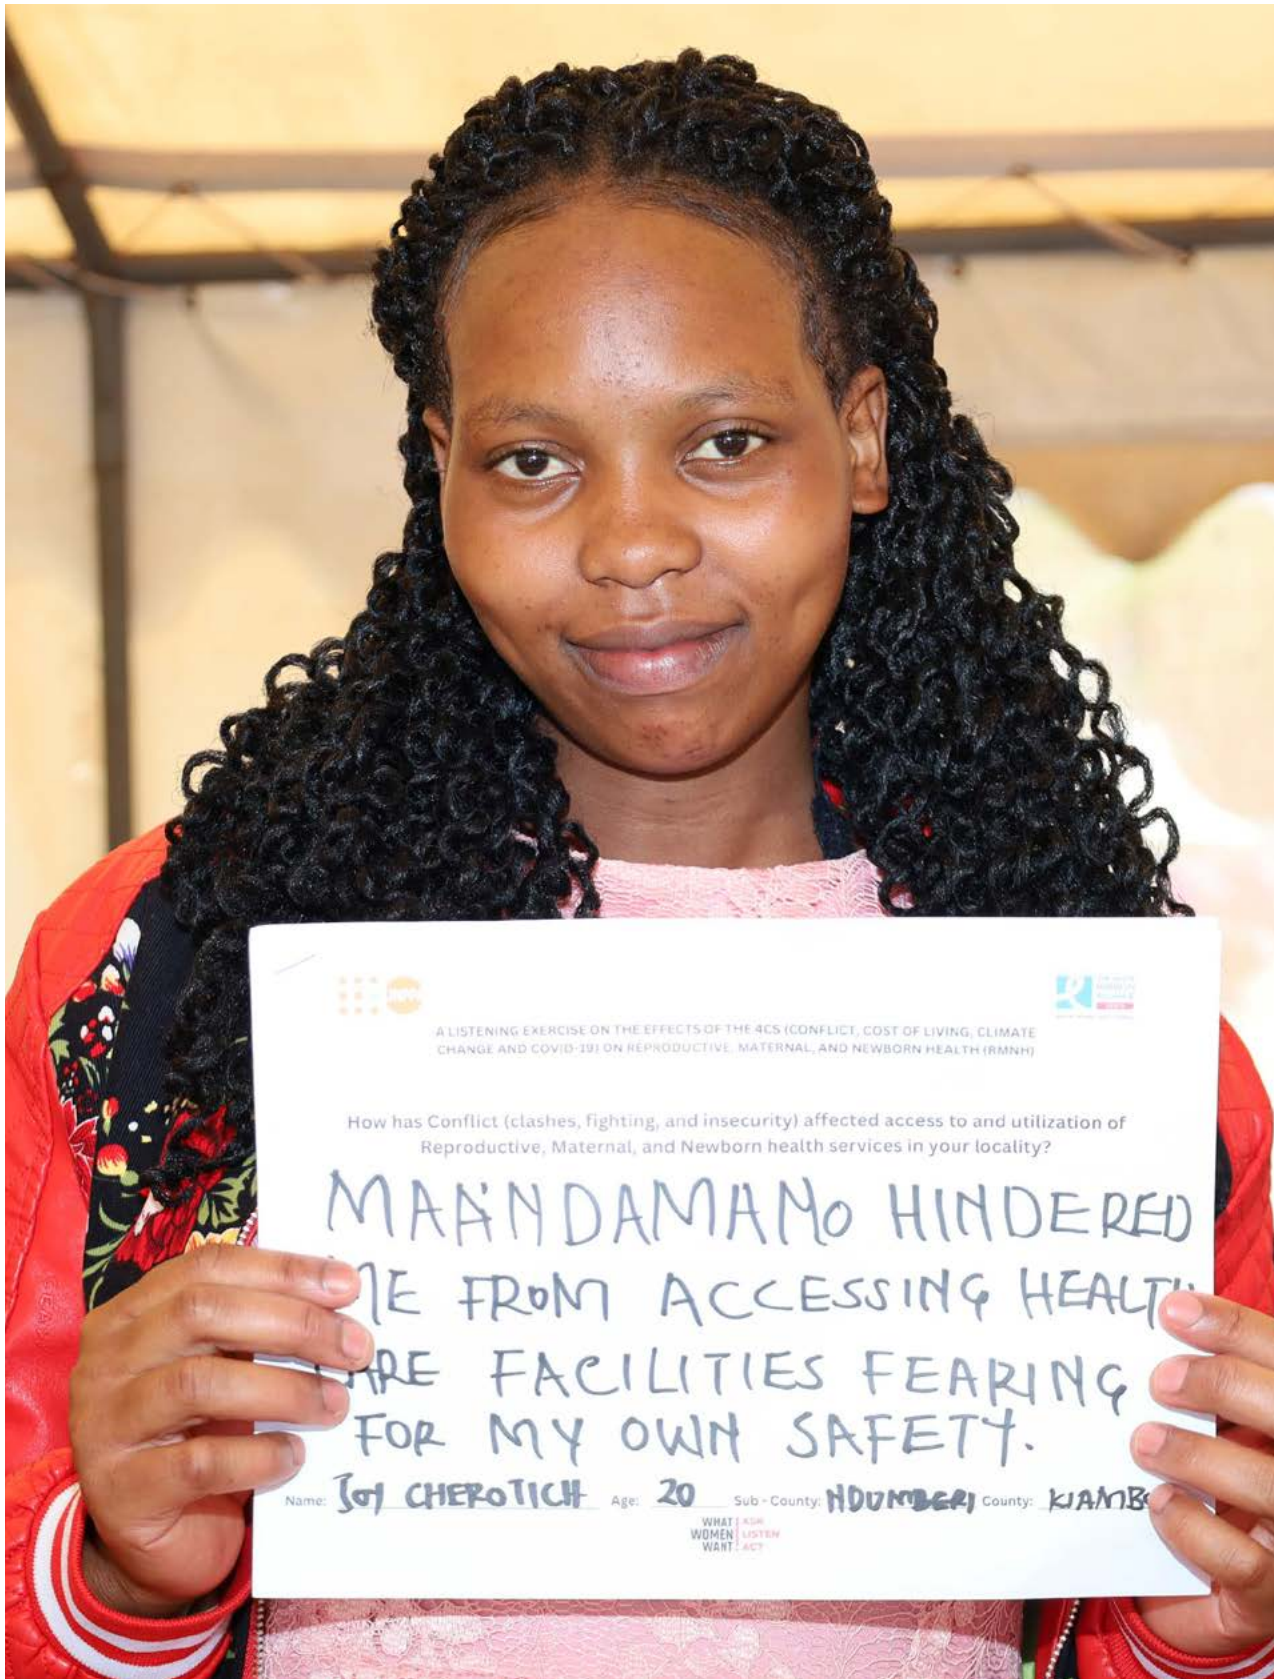 A LISTENING EXERCISE ON THE EFFECTS OF THE 4CS (CONFLICT, COST OF LIVING, CLIMATE
CHANGE AND COVID-19) ON REPRODUCTIVE, MATERNAL, AND NEWBORN HEALTH (RMNH)
How has Conflict (clashes, fighting, and insecurity) affected access to and utilization of
Reproductive, Maternal, and Newborn health services in your locality?
MAANDAMANO HINDERED
ME FROM ACCESSING HEALTH
CARE FACILITIES FEARING
FOR MY OWN SAFETY.
Name: JOY CHEROTICH Age: 20 Sub - County: NDUMBERI County: KIAMBU
WHAT ASK
WOMEN LISTEN
WANT ACT